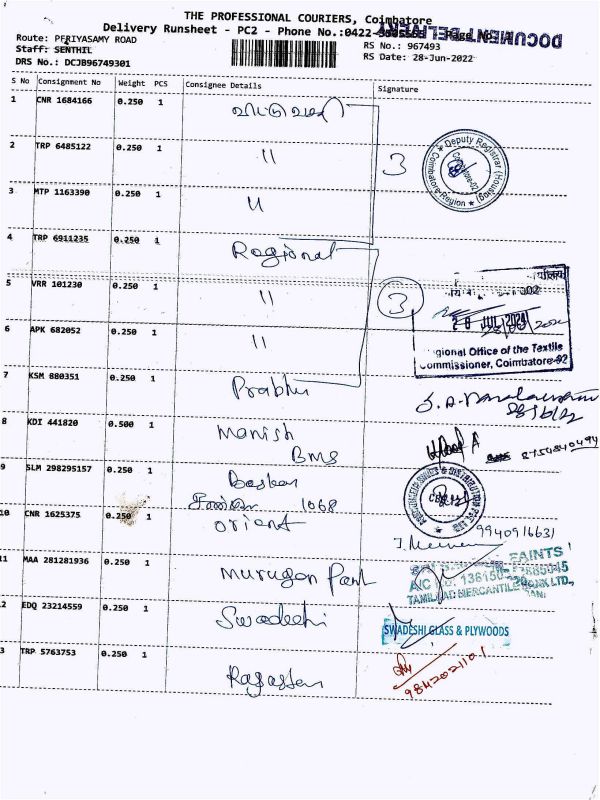 THE PROFESSIONAL COURIERS, Coimbatore
Delivery Runsheet - PC2 - Phone No.:0422-
DOCUMENT DELIVERY
Route: PERIYASAMY ROAD
RS No.: 967493
Staff: SENTHIL
RS Date: 28-Jun-2022
DRS No.: DCJB96749301
S No Consignment No Weight PCS Consignee Details Signature
1 CNR 1684166 0.250 1 வீட்டு வசதி
2 TRP 6485122 0.250 1 11 3
Deputy Registrar (Housing) Coimbatore-Region
3 MTP 1163390 0.250 1 11
4 TRP 6911235 0.250 1 Regional
5 VRR 101230 0.250 1 11 3
002
28 JUL 2021
6 APK 682052 0.250 1 11
Regional Office of the Textile
Commissioner, Coimbatore-02
7 KSM 880351 0.250 1 Prabhu
8 KDI 441820 0.500 1 Manish
BMS
8754840494
9 SLM 298295157 0.250 1 Baskar
1068
10 CNR 1625375 0.250 1 orient
9940916631
11 MAA 281281936 0.250 1 Murugan Paint
PAINTS
A/C
TAMILNAD MERCANTILE BANK LTD.,
12 EDQ 23214559 0.250 1 Swadeshi
SWADESHI GLASS & PLYWOODS
13 TRP 5763753 0.250 1 Rajastan
9842021101